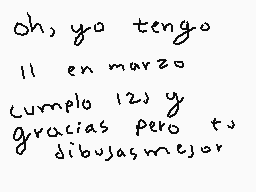 oh, yo tengo
11 en marzo
cumplo 12, y
gracias pero tu
dibujas mejor